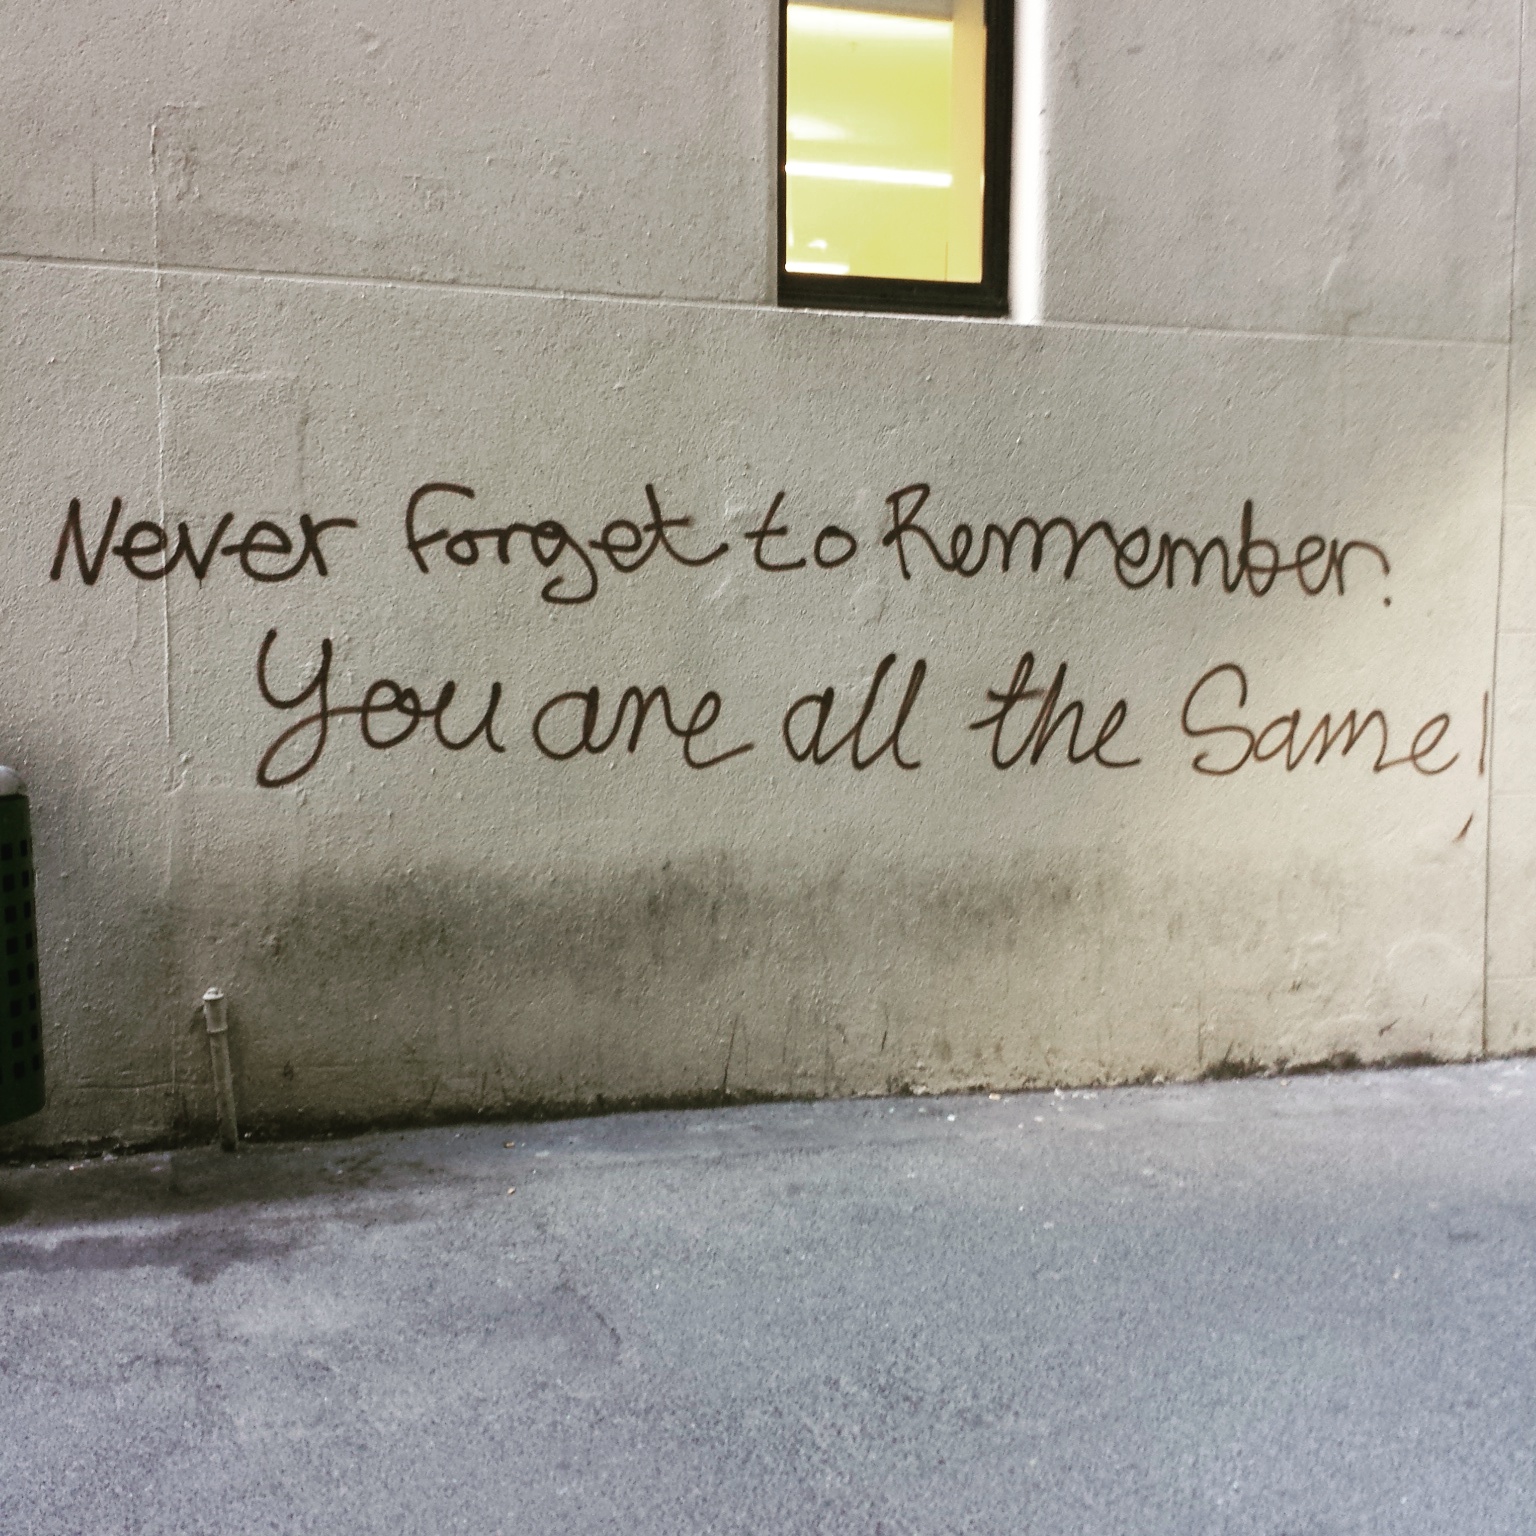 Never forget to Remember.
You are all the Same!